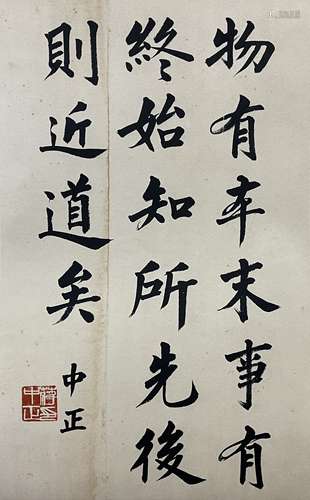 物有本末事有
終始知所先後
則近道矣
中正
蔣印
中正